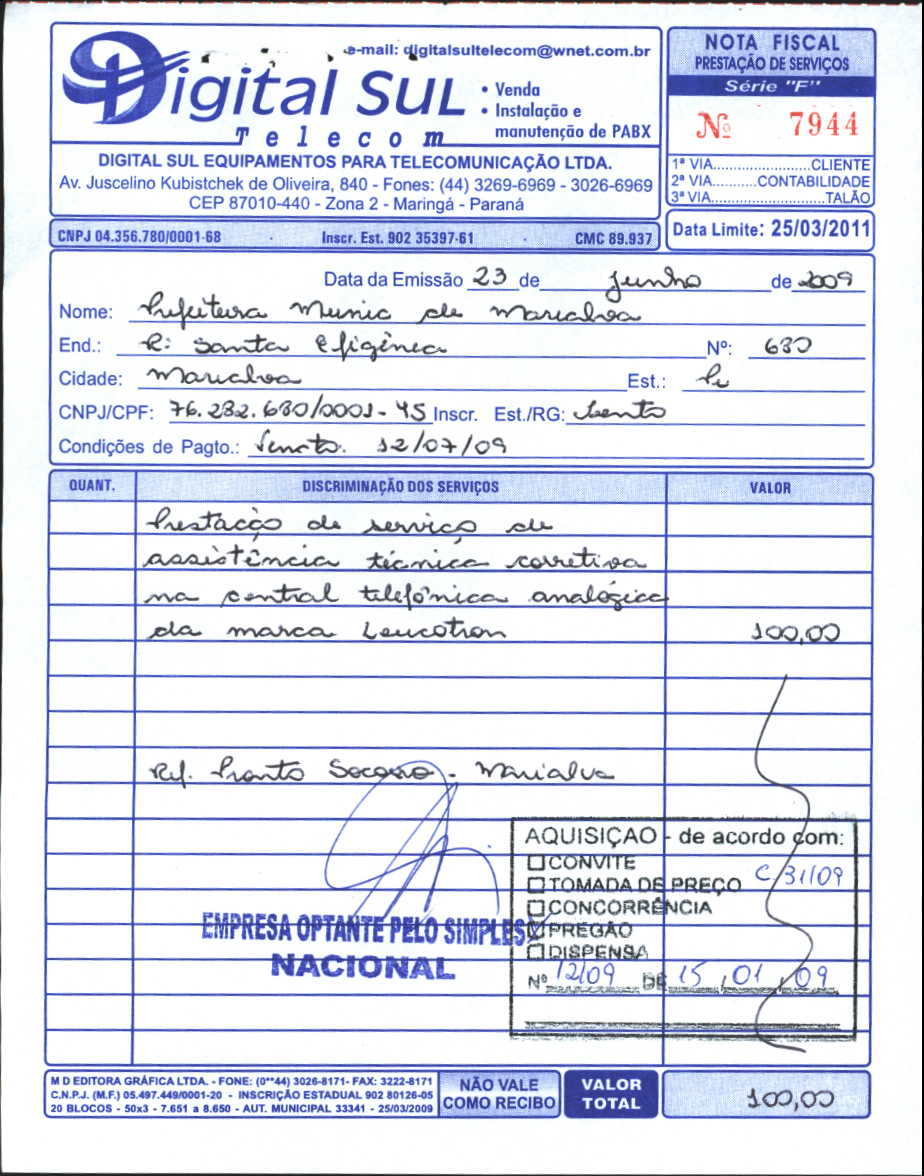 e-mail: digitalsultelecom@wnet.com.br
Digital Sul
Telecom
• Venda
• Instalação e
manutenção de PABX
DIGITAL SUL EQUIPAMENTOS PARA TELECOMUNICAÇÃO LTDA.
Av. Juscelino Kubistchek de Oliveira, 840 - Fones: (44) 3269-6969 - 3026-6969
CEP 87010-440 - Zona 2 - Maringá - Paraná
NOTA FISCAL
PRESTAÇÃO DE SERVIÇOS
Série "F"
Nº 7944
1ª VIA..........................CLIENTE
2ª VIA...........CONTABILIDADE
3ª VIA.............................TALÃO
CNPJ 04.356.780/0001-68 Inscr. Est. 902 35397-61 CMC 89.937
Data Limite: 25/03/2011
Data da Emissão 23 de junho de 2009
Nome: Prefeitura Munic de Marialva
End.: R: Santa Efigênea Nº: 680
Cidade: Marialva Est.: Pr
CNPJ/CPF: 76.282.680/0001-45 Inscr. Est./RG: Isento
Condições de Pagto.: Vencto. 12/07/09
QUANT. DISCRIMINAÇÃO DOS SERVIÇOS VALOR
Prestação de serviço de
assistência técnica corretiva
na central telefônica analógica
da marca Leucotron 100,00
Ref. Pronto Socorro - Marialva
AQUISIÇÃO - de acordo com:
CONVITE
TOMADA DE PREÇO C 31/09
CONCORRÊNCIA
PREGÃO
DISPENSA
Nº 12/09 DE 15,01,09
EMPRESA OPTANTE PELO SIMPLES
NACIONAL
M D EDITORA GRÁFICA LTDA. - FONE: (0**44) 3026-8171- FAX: 3222-8171
C.N.P.J. (M.F.) 05.497.449/0001-20 - INSCRIÇÃO ESTADUAL 902 80126-05
20 BLOCOS - 50x3 - 7.651 a 8.650 - AUT. MUNICIPAL 33341 - 25/03/2009
NÃO VALE
COMO RECIBO
VALOR
TOTAL
100,00